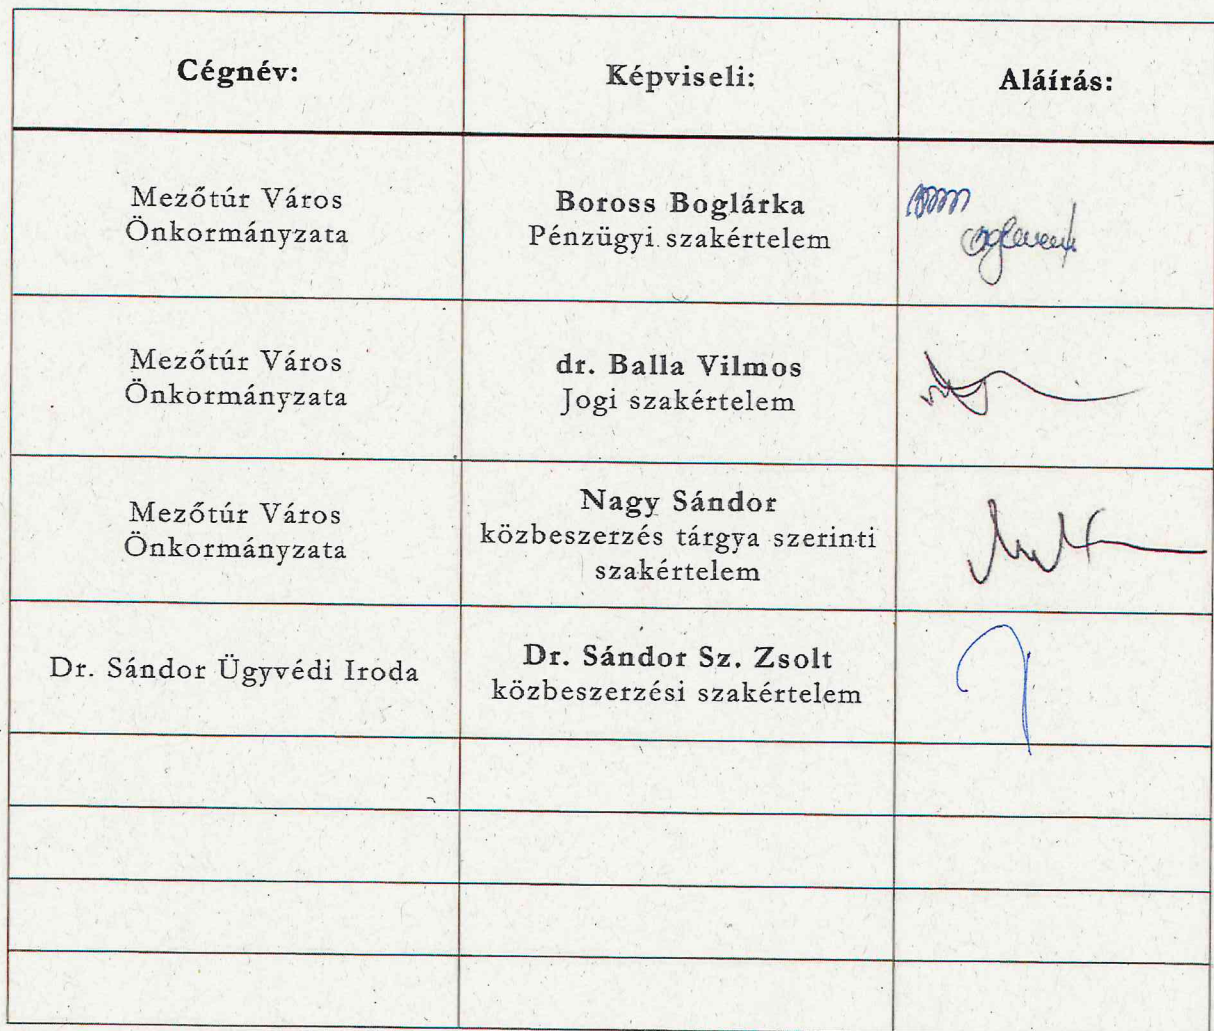 Cégnév:
Képviseli:
Aláírás:
Mezőtúr Város
Önkormányzata
Boross Boglárka
Pénzügyi szakértelem
Mezőtúr Város
Önkormányzata
dr. Balla Vilmos
Jogi szakértelem
Mezőtúr Város
Önkormányzata
Nagy Sándor
közbeszerzés tárgya szerinti
szakértelem
Dr. Sándor Ügyvédi Iroda
Dr. Sándor Sz. Zsolt
közbeszerzési szakértelem